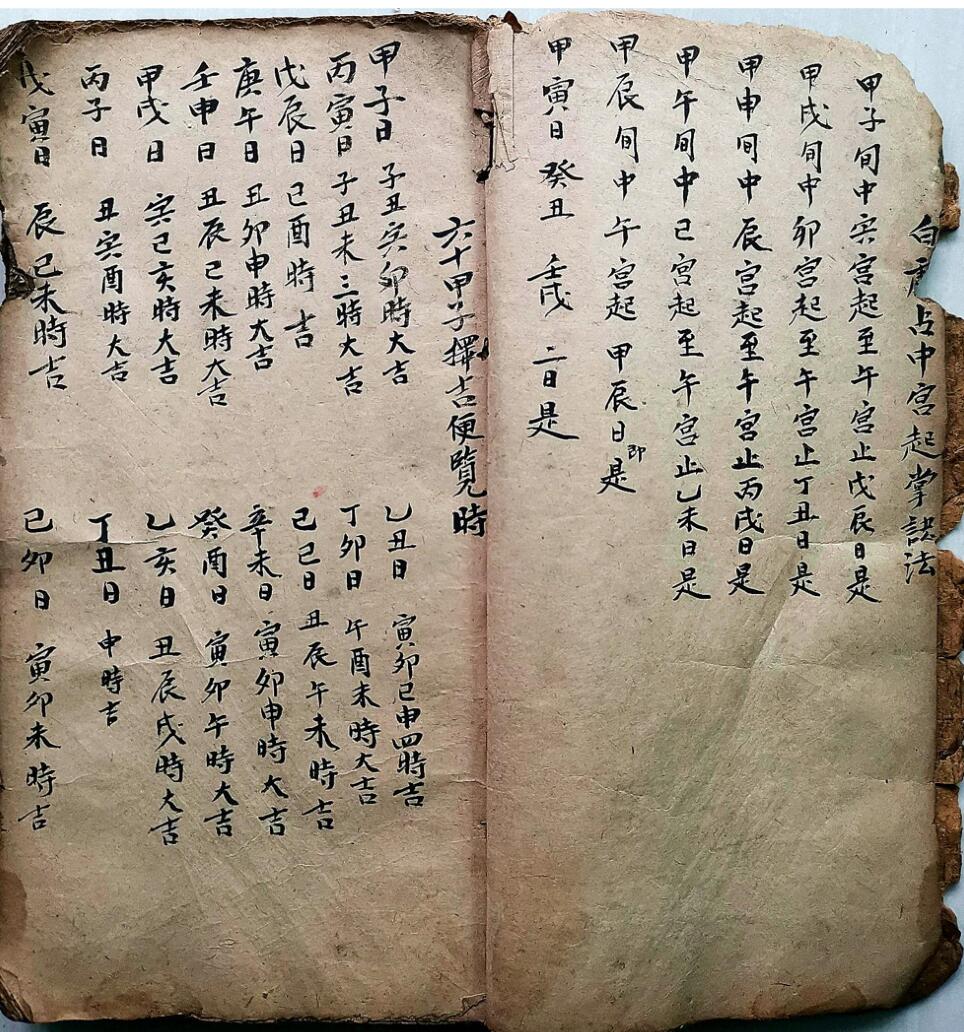 白虎占中宫起掌訣法
甲子旬中寅宫起至午宫止戊辰日是
甲戌旬中卯宫起至午宫止丁丑日是
甲申旬中辰宫起至午宫止丙戌日是
甲午旬中巳宫起至午宫止乙未日是
甲辰旬中午宫起甲辰日即是
甲寅日癸丑壬戌二日是
六十甲子擇吉便覽時
甲子日子丑寅卯時大吉 乙丑日寅卯巳申四時吉
丙寅日子丑未三時大吉 丁卯日午酉未時大吉
戊辰日巳酉時吉 己巳日丑辰午未時吉
庚午日丑卯申時大吉 辛未日寅卯申時大吉
壬申日丑辰巳未時大吉 癸酉日寅卯午時大吉
甲戌日寅巳亥時大吉 乙亥日丑辰戌時大吉
丙子日丑寅酉時大吉 丁丑日申時吉
戊寅日辰巳未時吉 己卯日寅卯未時吉